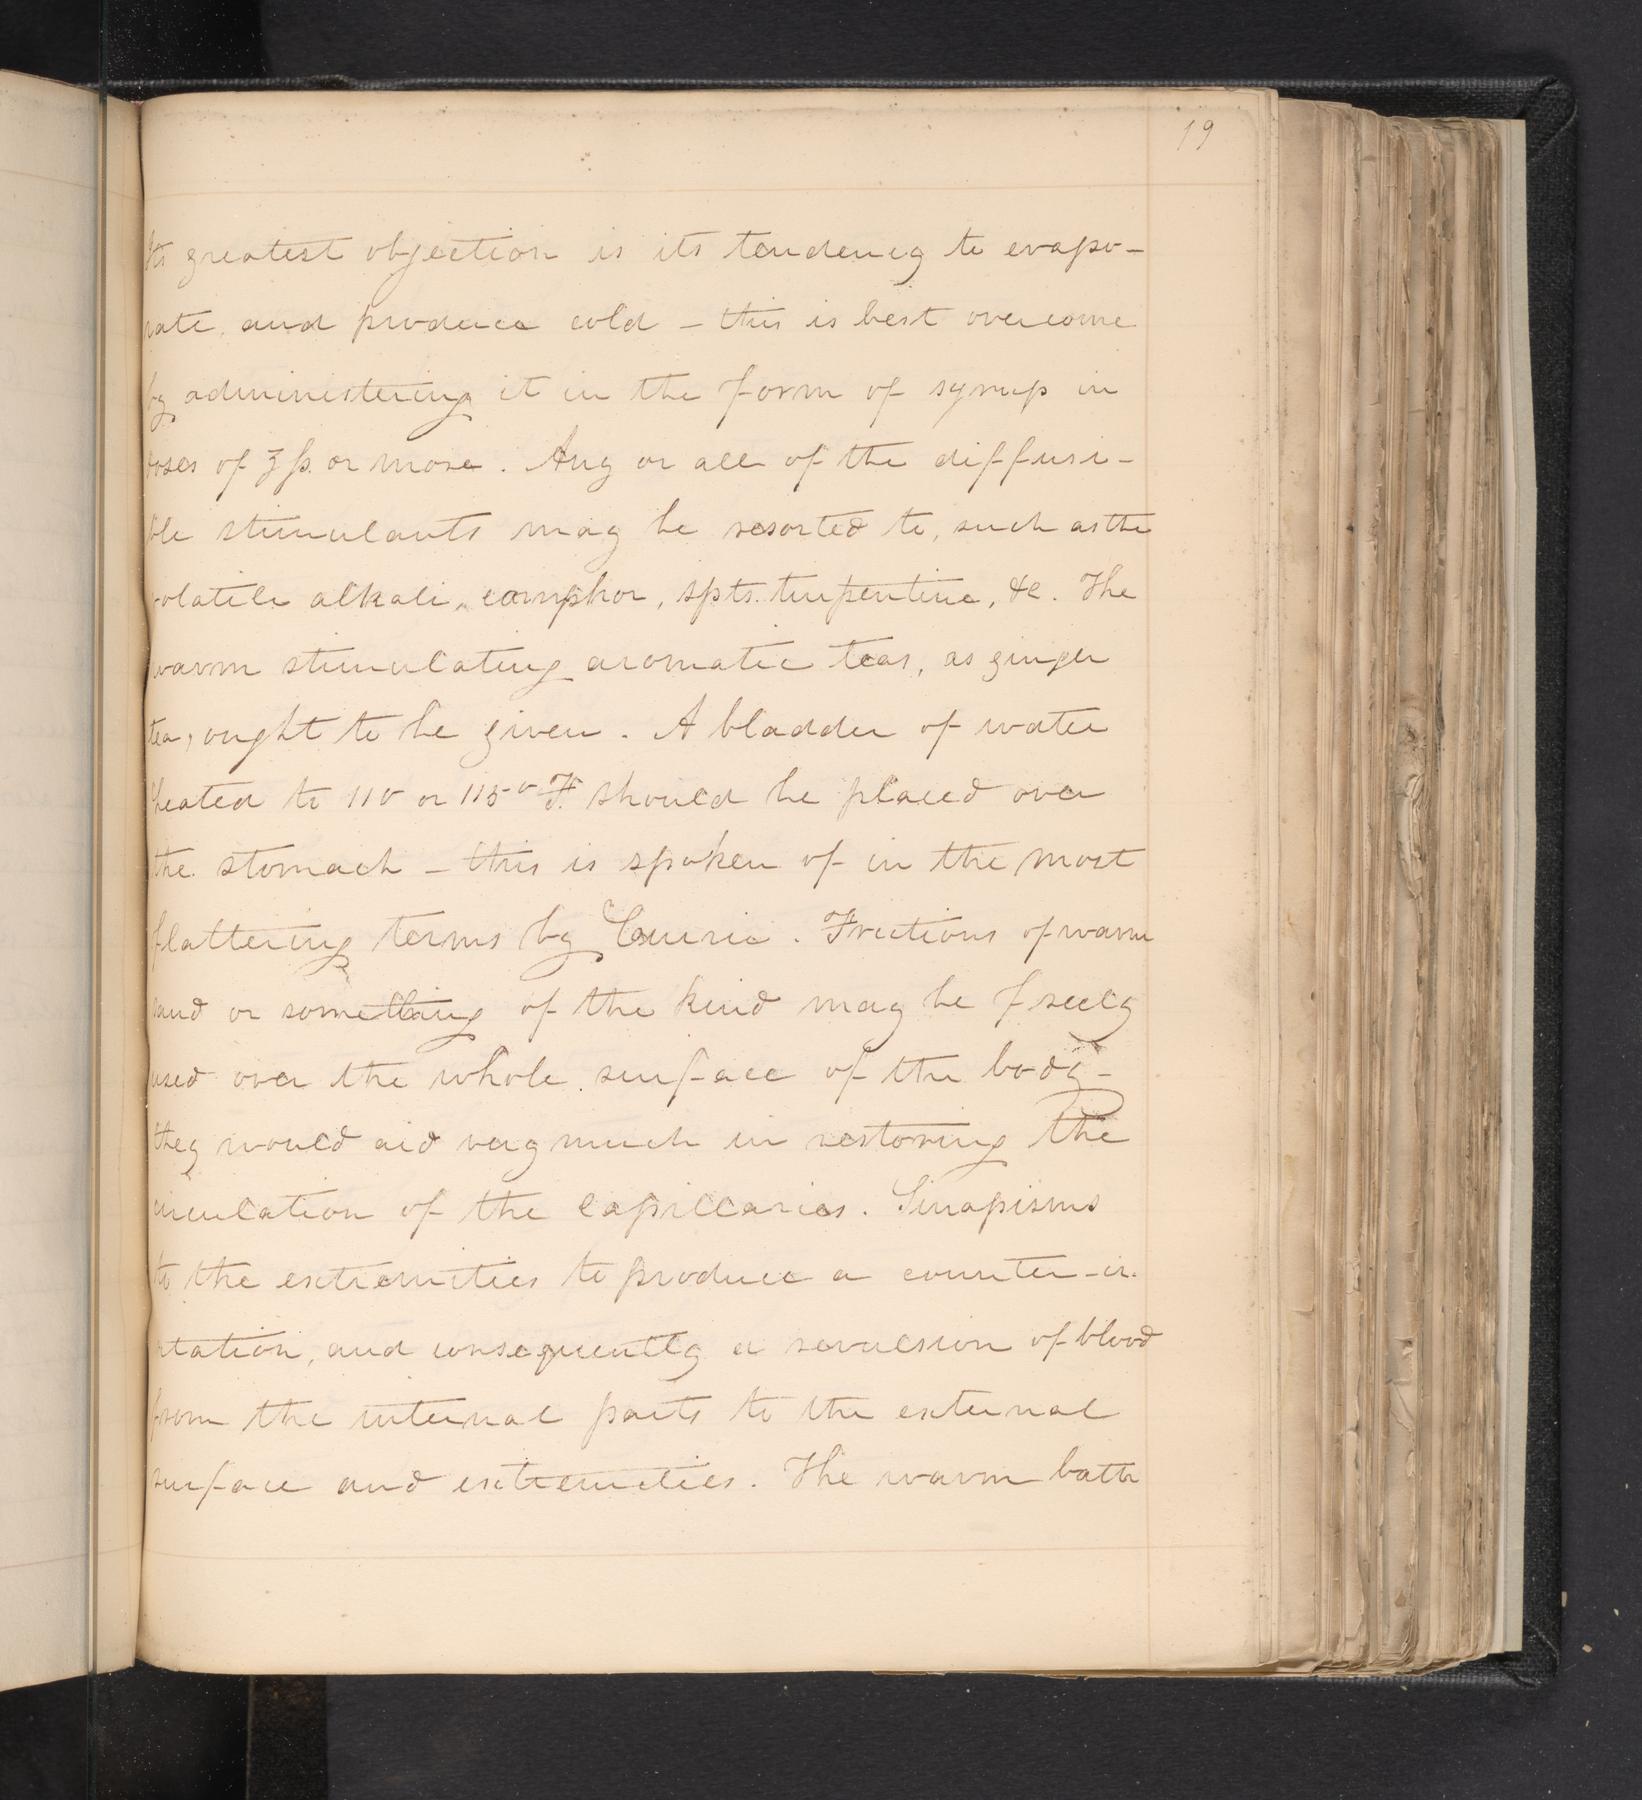 19
Its greatest objection is its tendency to evapo-
rate, and produce cold – this is best overcome
by administering it in the form of syrup in
doses of ʒſs. or more. Any or all of the diffusi-
ble stimulants may be resorted to, such as the
volatile alkali, camphor, spts. turpentine, &c. The
warm stimulating aromatic teas, as ginger
tea, ought to be given. A bladder of water
heated to 110 or 115° F. should be placed over
the stomach – this is spoken of in the most
flattering terms by Currie. Frictions of warm
sand or something of the kind may be freely
used over the whole surface of the body –
they would aid very much in restoring the
circulation of the capillaries. Sinapisms
to the extremities to produce a counter-ir-
ritation, and consequently a revulsion of blood
from the internal parts to the external
surface and extremities. The warm bath